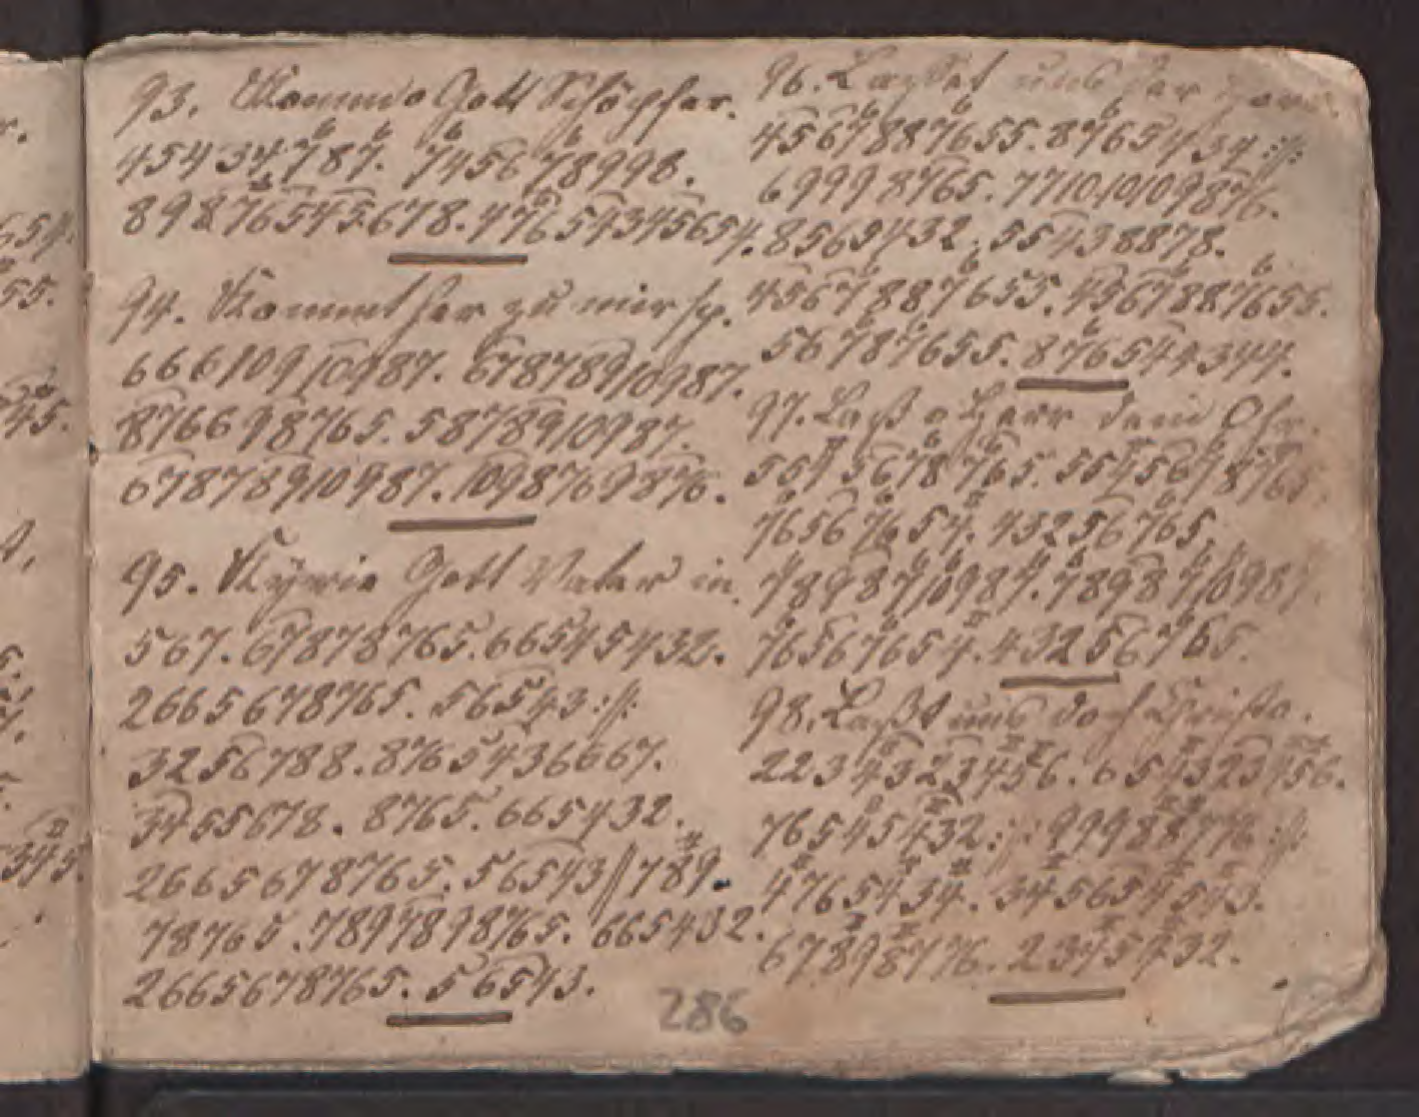 93. Komm o Gott Schöpfer.
45434787. 745678998.
898765545678. 4765434565 4.
94. Kommt her zu mir sp.
66610910987. 67878910987.
876698765. 5878910987.
67878910987. 1098769876.
95. Kyrie Gott Vater in
567. 67878765. 66545432.
2665678765. 56543:||:
3256788. 8765436667.
3455678. 8765. 665432.
2665678765. 56543||789.
78765. 7897898765. 665432.
2665678765. 56543.
286
96. Lasset uns
4567887655. 87654 34:||:
69998765. 771010109876.
8565432. 55438878.
4567887655. 4567887655.
56787655. 8765443 44.
97. Laß o Herr dein Ohr.
5545678765. 5545678765.
76567654. 43256765.
789871098 7. 789871098
76567654. 43256765.
98. Laßt uns doch Christo.
22343234 56. 6543234 56.
76545432:||: 99988776:||:
4765434. 345654543.
67898776. 2345432.
654.
55.
45.
345.